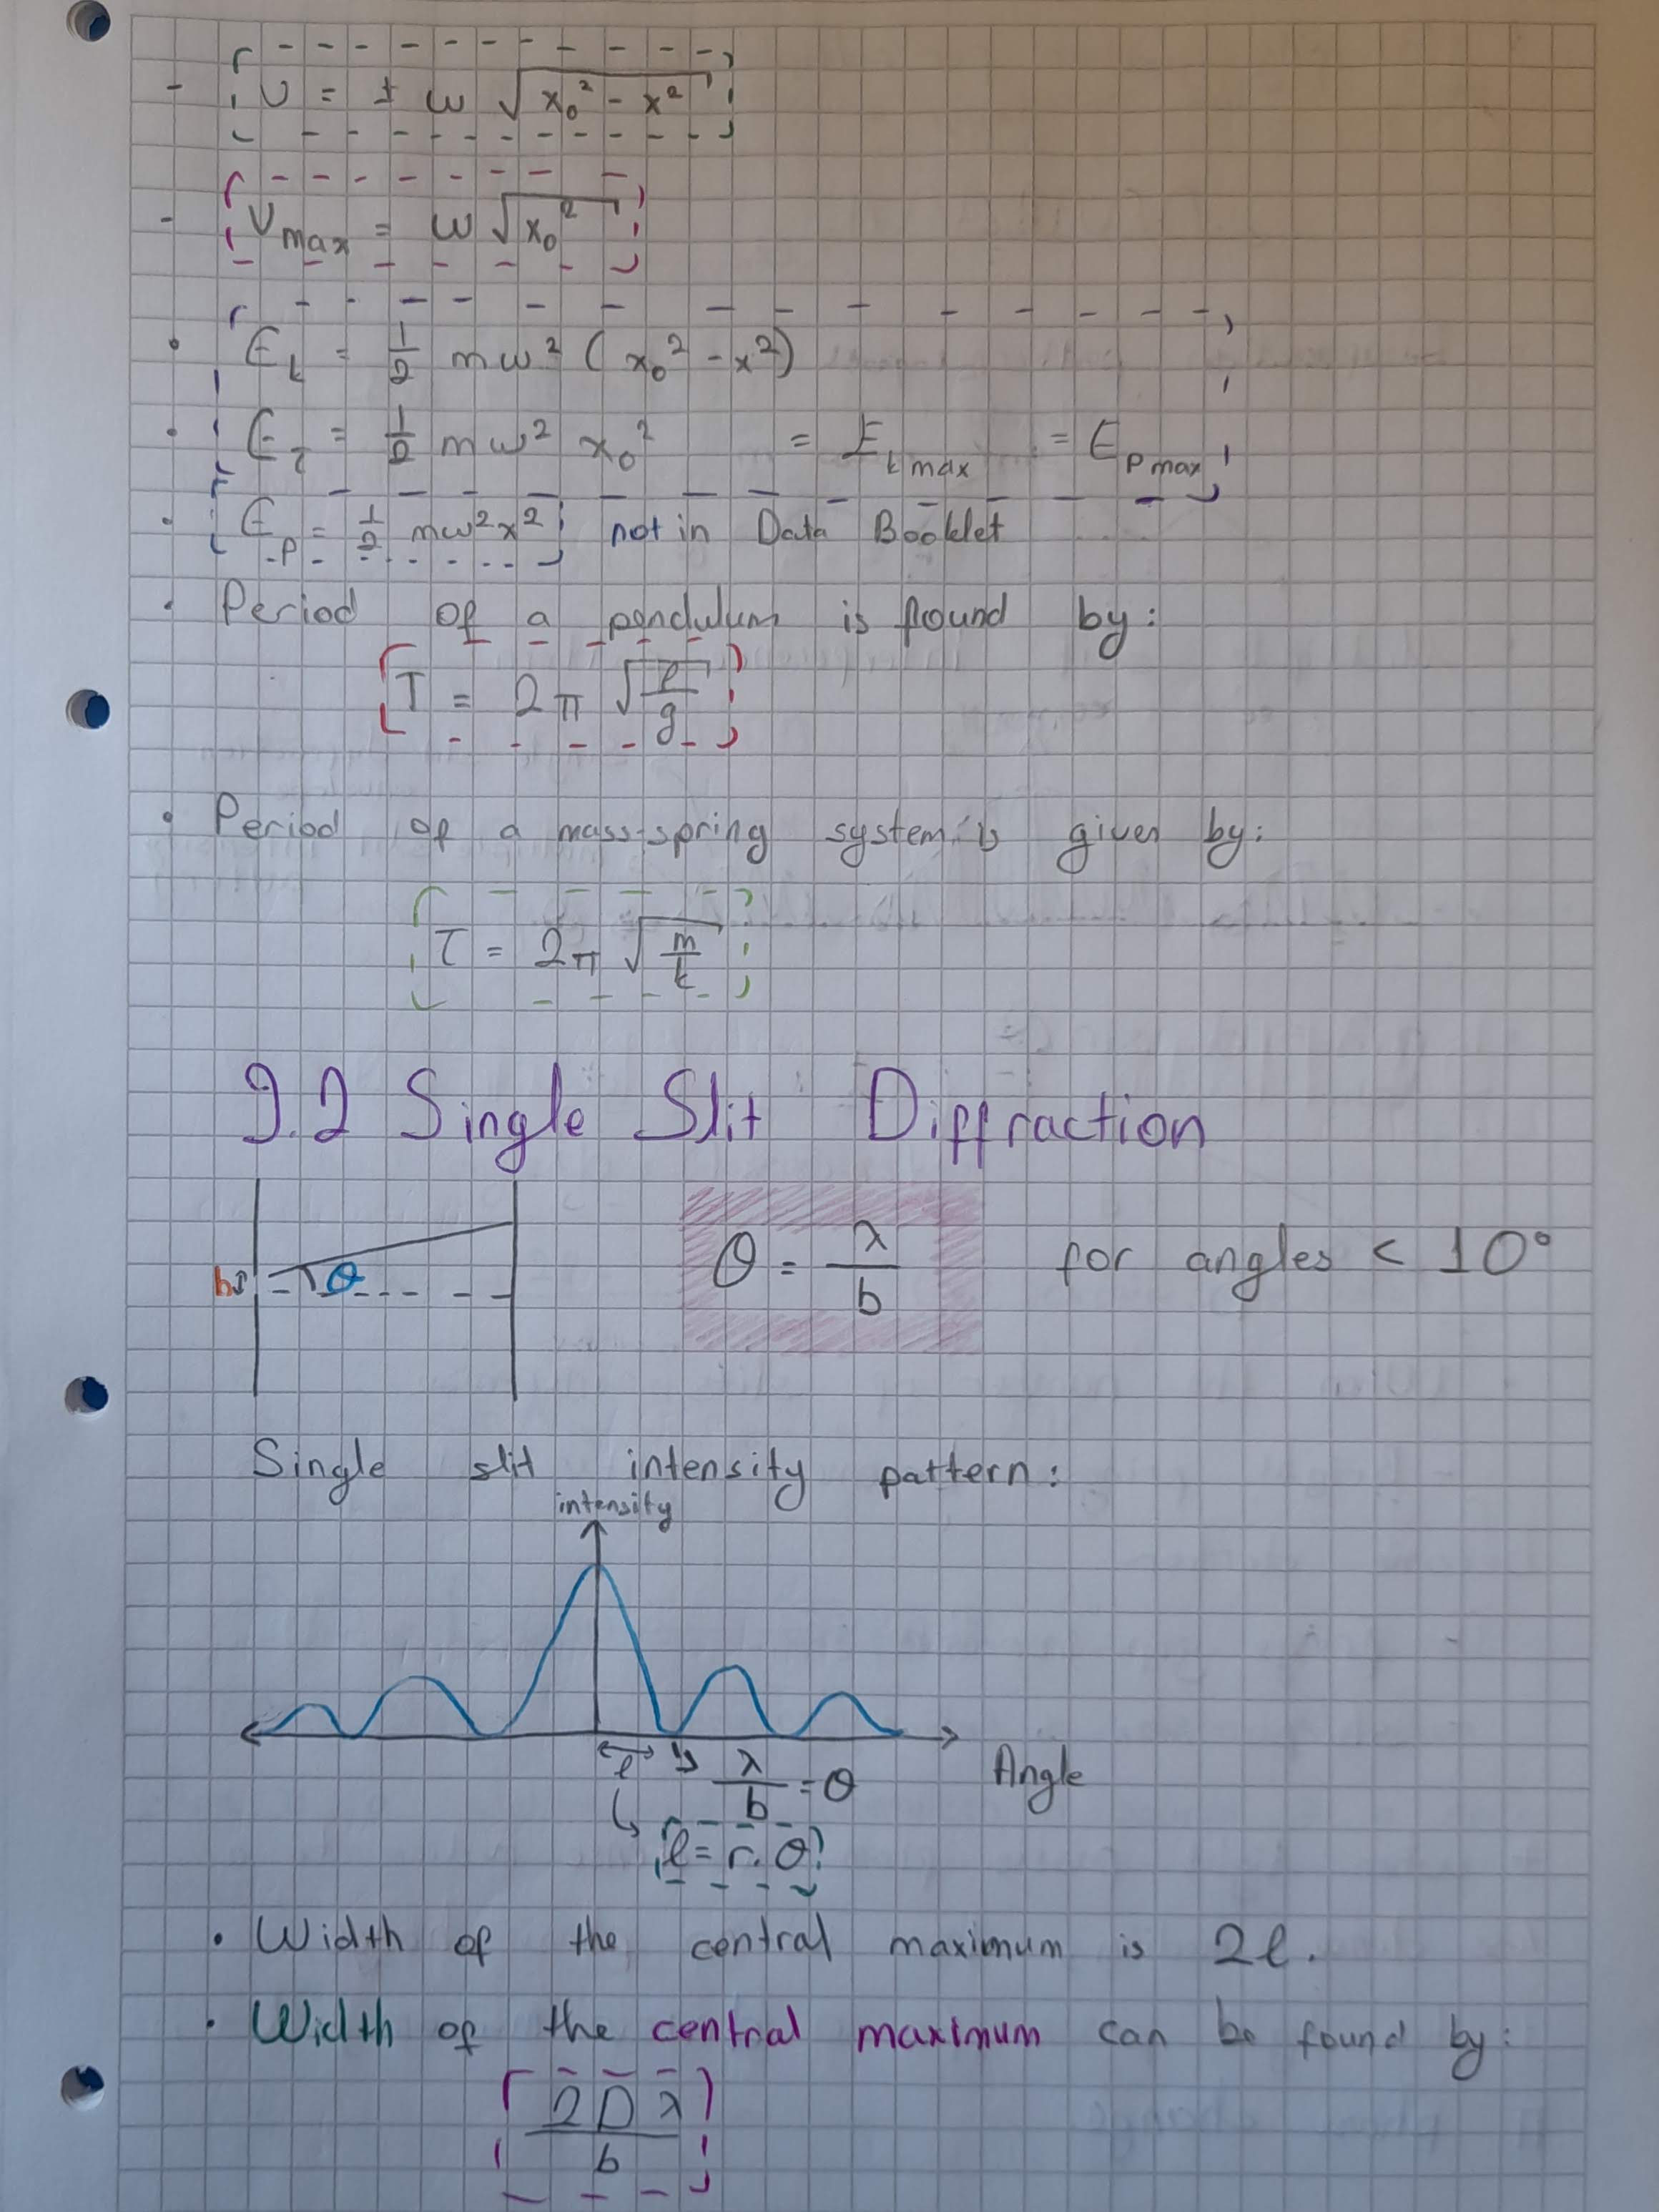 - v = ± ω √(x₀² - x²)
- Vmax = ω √(x₀²)
• Eₖ = 1/2 mω² (x₀² - x²)
• E_T = 1/2 mω² x₀² = Eₖ max = Eₚ max
• Eₚ = 1/2 mω²x² not in Data Booklet
• Period of a pendulum is found by:
T = 2π √(l/g)
• Period of a mass-spring system is given by:
T = 2π √(m/k)
9.2 Single Slit Diffraction
b θ
θ = λ/b for angles < 10°
Single slit intensity pattern:
intensity
Angle
l λ/b = θ
l = r.θ
• Width of the central maximum is 2l.
• Width of the central maximum can be found by:
2Dλ/b